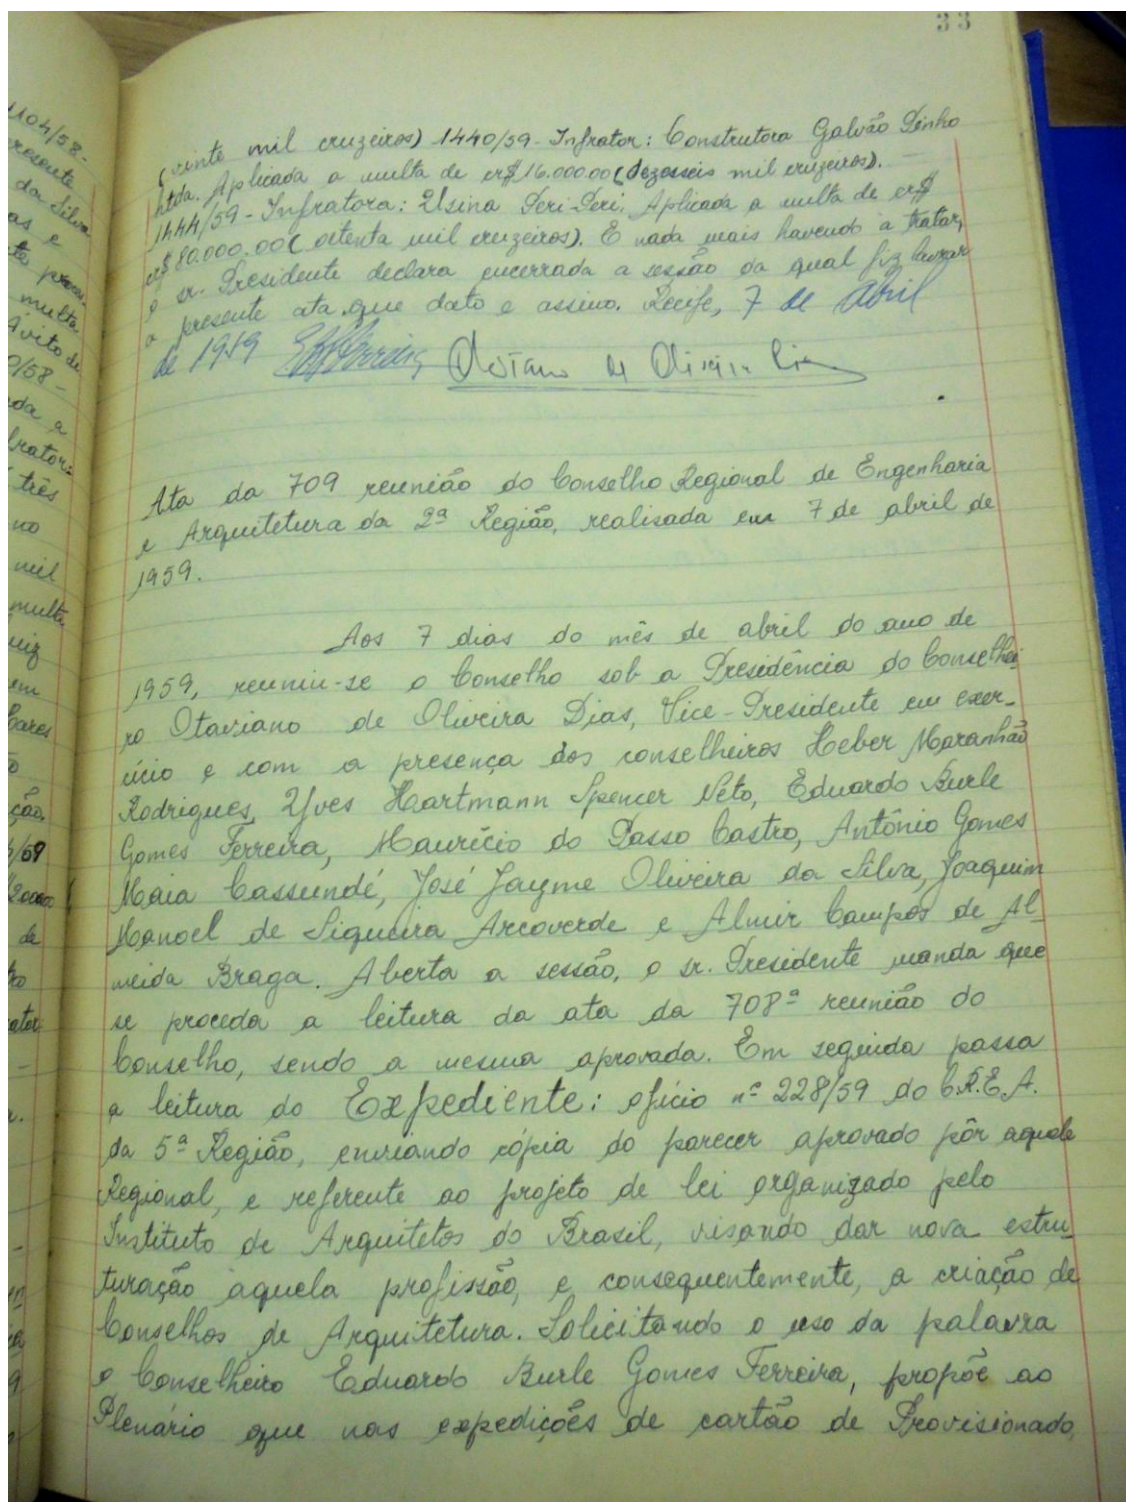 33
(vinte mil cruzeiros) 1440/59 - Infrator: Construtora Galvão Pinho
Ltda. Aplicada a multa de cr$ 16.000.00 (dezesseis mil cruzeiros). -
1444/59 - Infratora: Usina Peri-Peri. Aplicada a multa de cr$
cr$ 80.000.00 (oitenta mil cruzeiros). E nada mais havendo a tratar,
o sr. Presidente declara encerrada a sessão da qual fiz lavrar
a presente ata que dato e assino. Recife, 7 de abril
de 1959
Ata da 709 reunião do Conselho Regional de Engenharia
e Arquitetura da 2ª Região, realisada em 7 de abril de
1959.
Aos 7 dias do mês de abril do ano de
1959, reuniu-se o Conselho sob a Presidência do Conselhei-
ro Otaviano de Oliveira Dias, Vice-Presidente em exer-
cício e com a presença dos conselheiros Heber Maranhão
Rodrigues, Yves Hartmann Spencer Neto, Eduardo Burle
Gomes Ferreira, Maurício do Passo Castro, Antônio Gomes
Maia Cassundé, José Jayme Oliveira da Silva, Joaquim
Manoel de Siqueira Arcoverde e Almir Campos de Al-
meida Braga. Aberta a sessão, o sr. Presidente manda que
se proceda a leitura da ata da 708ª reunião do
Conselho, sendo a mesma aprovada. Em seguida passa
a leitura do Expediente: ofício nº 228/59 do C.R.E.A.
da 5ª Região, enviando cópia do parecer aprovado pôr aquele
Regional, e referente ao projeto de lei organizado pelo
Instituto de Arquitetos do Brasil, visando dar nova estru-
turação àquela profissão, e, consequentemente, a criação de
Conselhos de Arquitetura. Solicitando o uso da palavra
o Conselheiro Eduardo Burle Gomes Ferreira, propõe ao
Plenário que nas expedições de cartão de Provisionado,